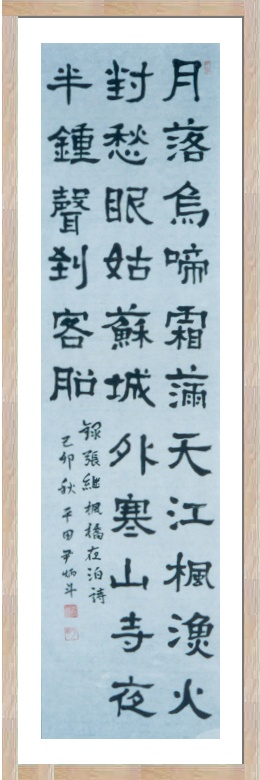 月落烏啼霜滿天江楓漁火
對愁眠姑蘇城外寒山寺夜
半鍾聲到客船
錄張繼楓橋夜泊詩
己卯秋平田尹炳斗